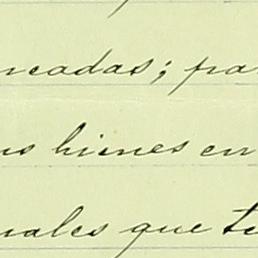 ncadas; pa
us bienes en
uales que te